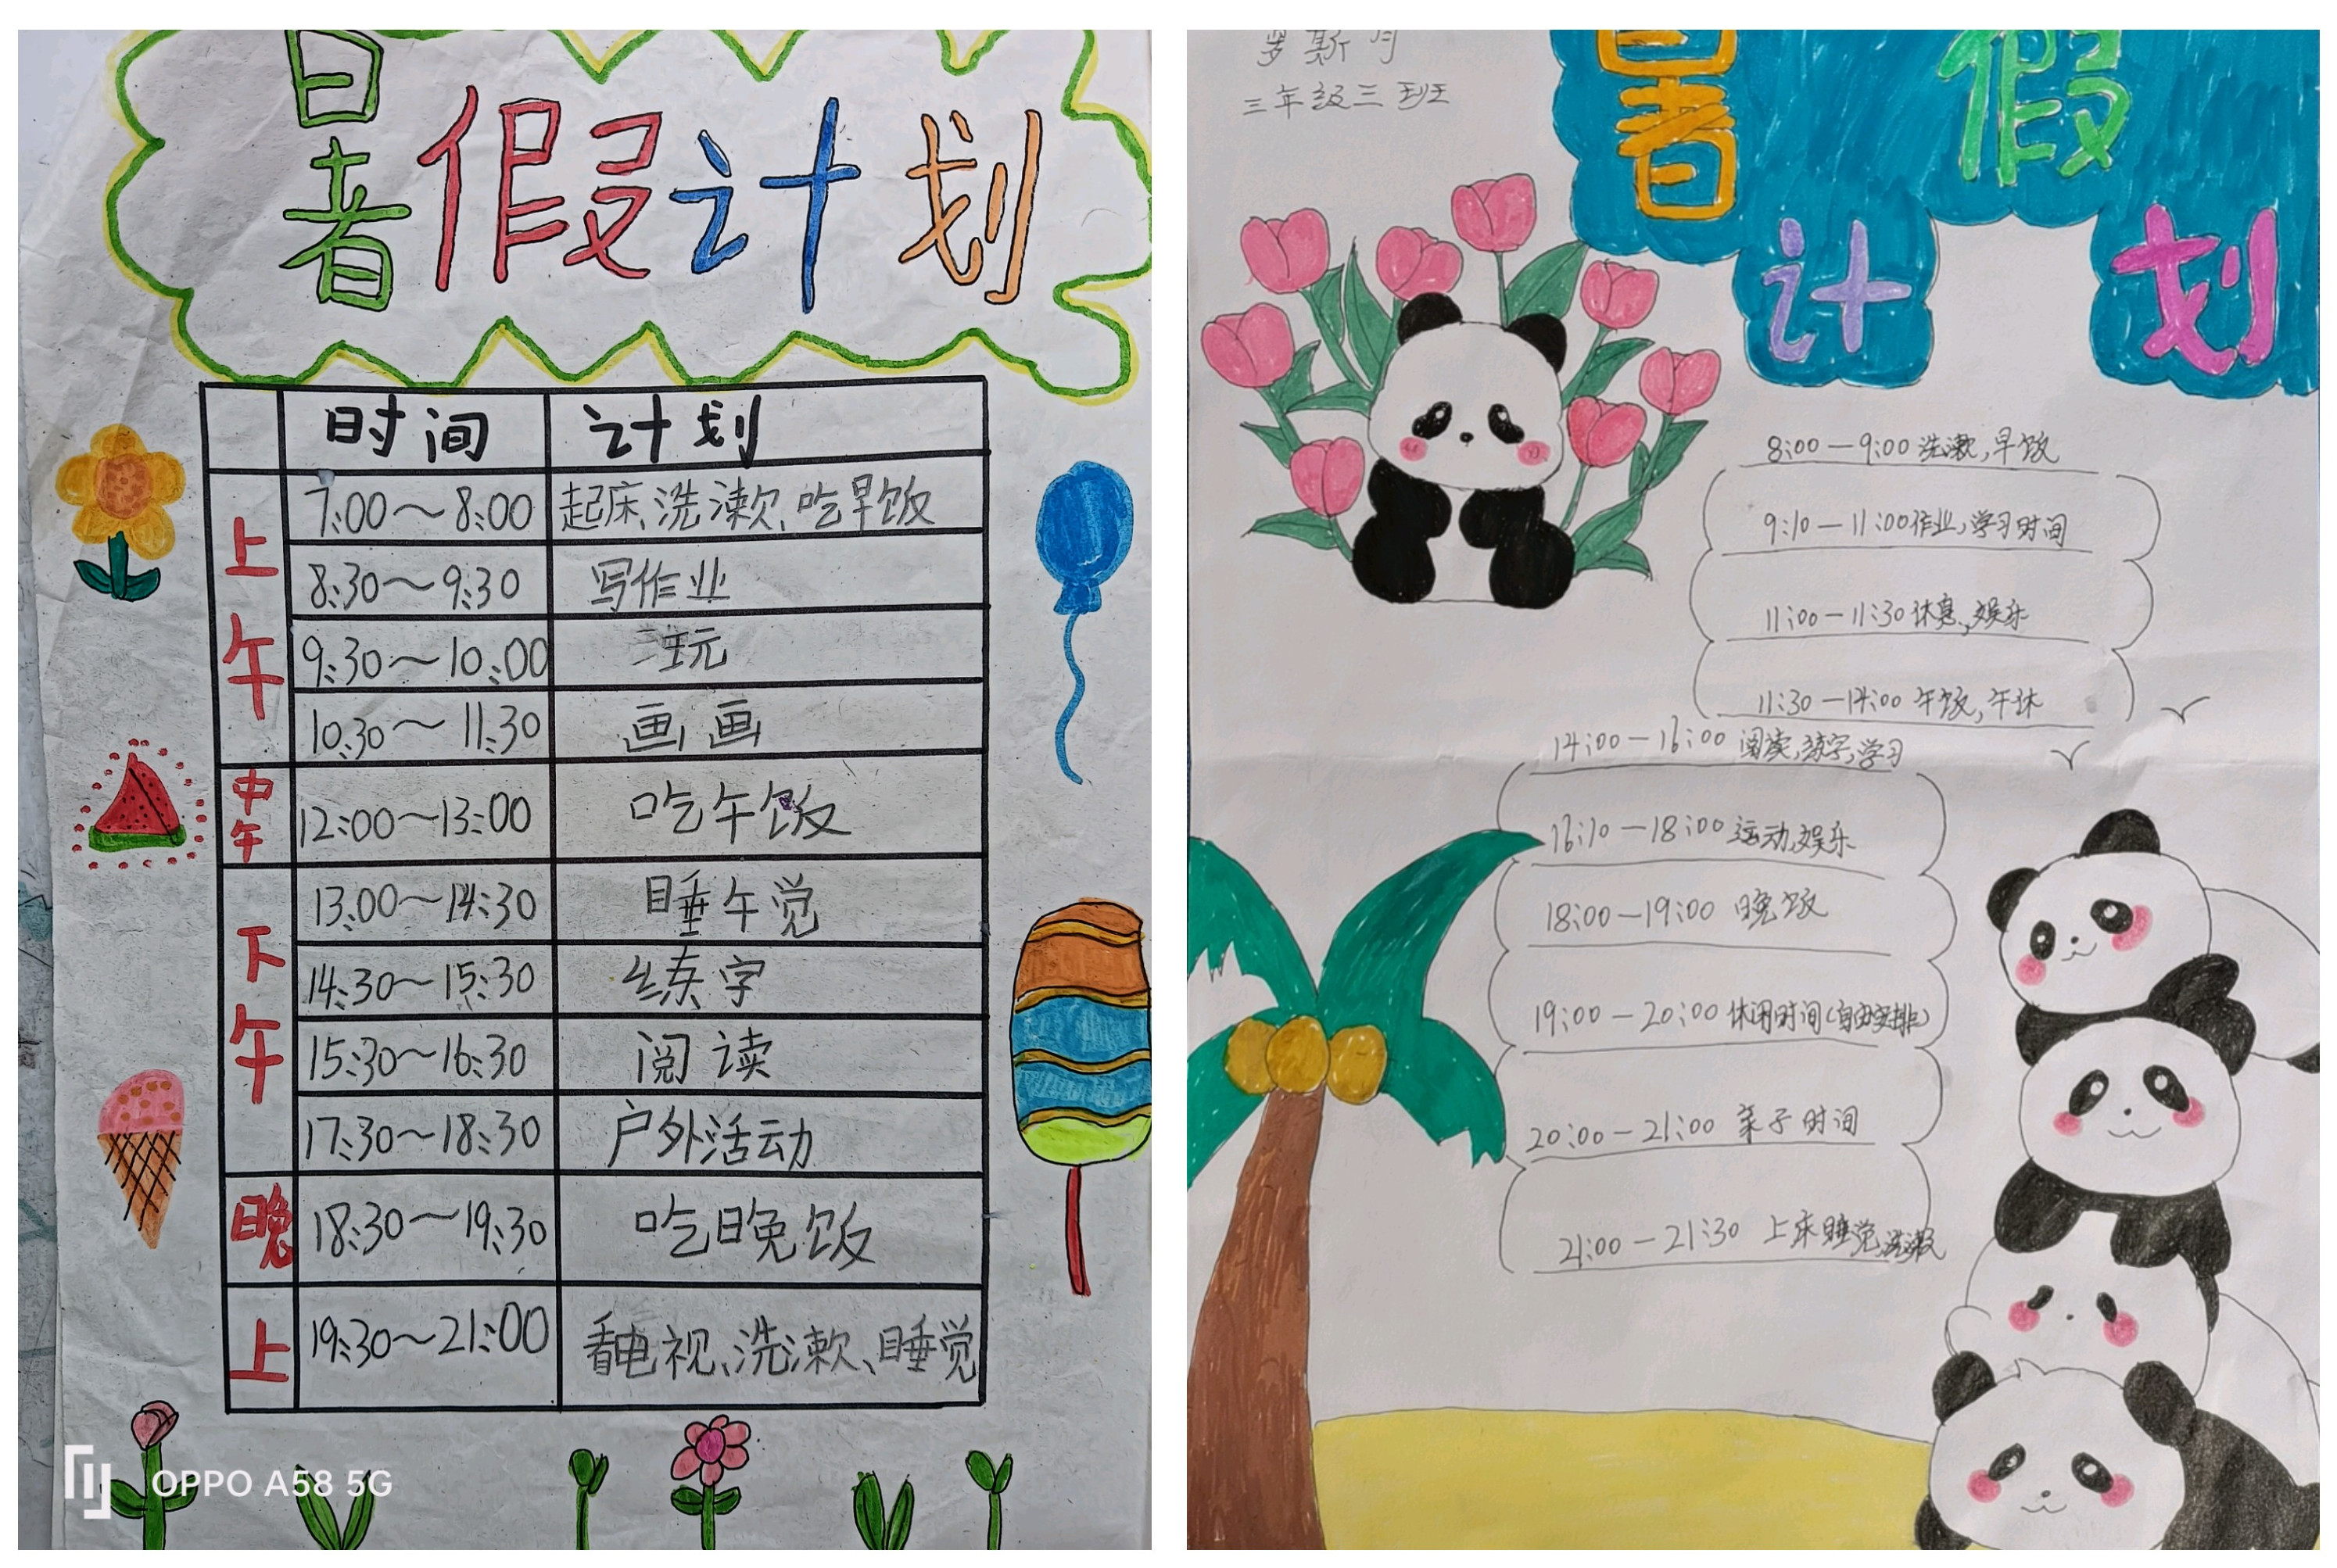 暑假计划
时间 计划
上午
7:00～8:00 起床、洗漱、吃早饭
8:30～9:30 写作业
9:30～10:00 玩
10:30～11:30 画画
中午
12:00～13:00 吃午饭
下午
13:00～14:30 睡午觉
14:30～15:30 练字
15:30～16:30 阅读
17:30～18:30 户外活动
晚上
18:30～19:30 吃晚饭
19:30～21:00 看电视、洗漱、睡觉
OPPO A58 5G
罗斯月
三年级三班
暑假
计划
8:00—9:00 洗漱,早饭
9:10—11:00 作业,学习时间
11:00—11:30 休息,娱乐
11:30—14:00 午饭,午休
14:00—16:00 阅读,练字,学习
16:10—18:00 运动,娱乐
18:00—19:00 晚饭
19:00—20:00 休闲时间(自由安排)
20:00—21:00 亲子时间
21:00—21:30 上床睡觉,洗漱